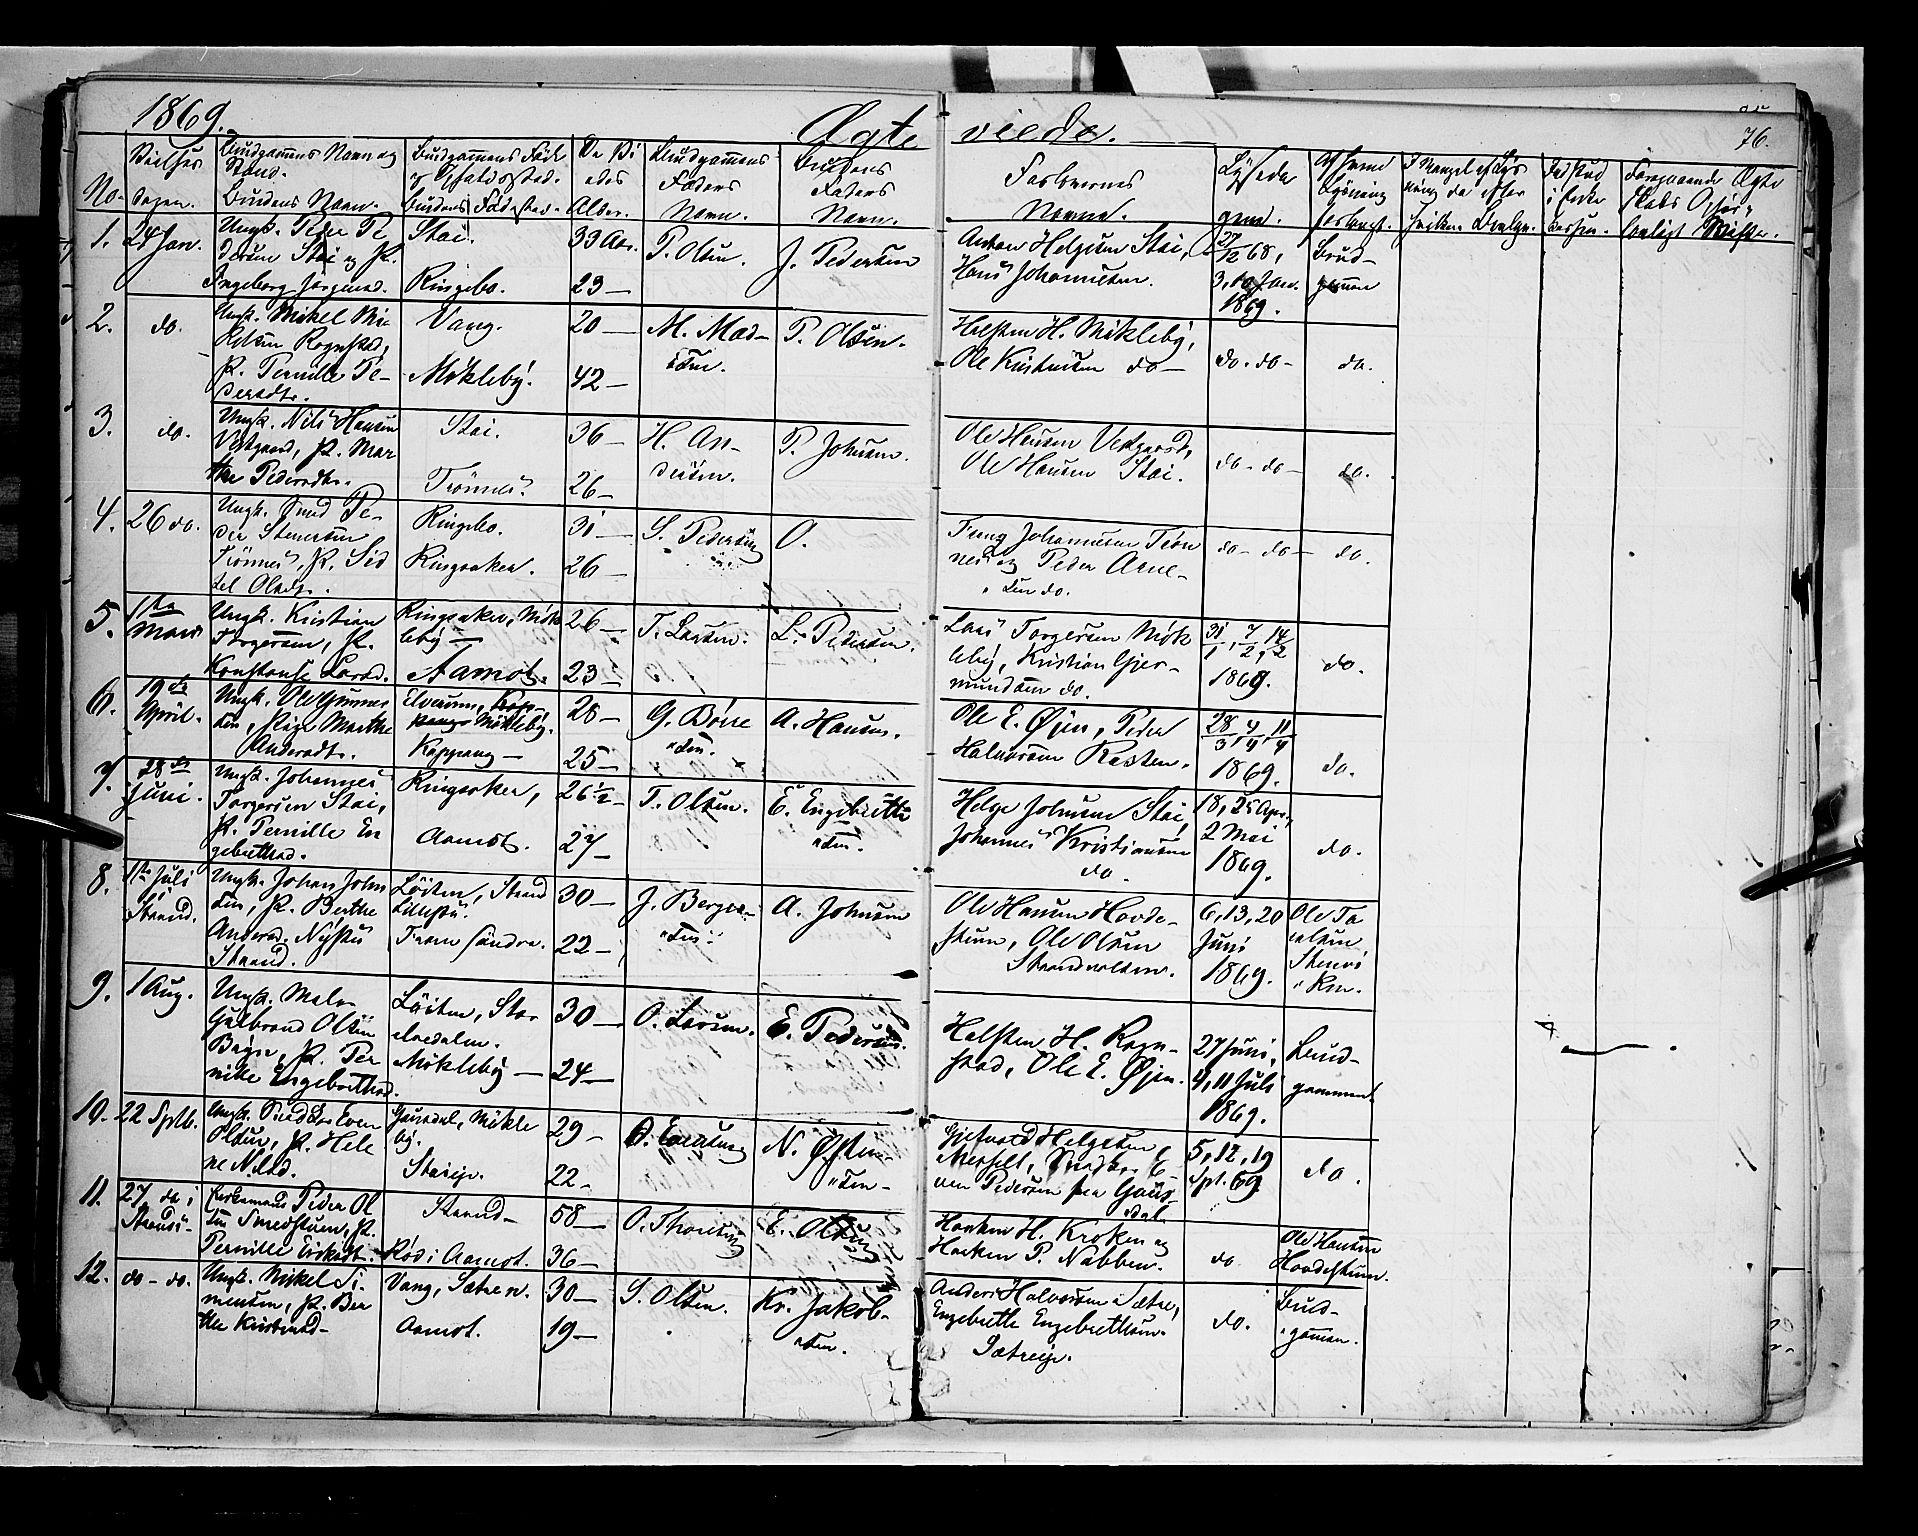 1869.
Ægte viede.
76.
No.
Vielses
dagen.
Brudgommens Navn og
Stand.
Brudens Navn.
Brudgommens Føde
og Opholdssted.
Brudens Fødested.
De Vi
edes
Alder.
Brudgommens
Faders
Navn.
Brudens
Faders
Navn.
Forlovernes
Navne.
Lyseda
gene.
Af hvem
Lysning
forlangt.
Foregaaende Ægte
1. 24 Jan.
Ungk. Peder Pe
dersen Stai og P.
Ingeborg Jørgensd.
Stai.
Ringebo.
33 Aar.
23 —
P. Olsen.
J. Pedersen
Anton Helgesen Stai,
Hans Johannesen.
27/12 68,
3, 10 Jan.
1869.
Brud-
gommen
2. do.
Ungk. Mikel Mi
kelsen Rognstad,
P. Pernille Pe-
dersdtr.
Vang.
Møkleby.
20 —
42 —
M. Mad-
sen.
P. Olsen.
Halsten H. Møkleby,
Ole Kristensen do —
do. do —
do.
3. do.
Ungk. Nils Hansen
Vestgaard, P. Mar
the Pedersdtr.
Stai.
Trønnes.
36 —
26 —
H. An-
dersen.
P. Johnsen.
Ole Hansen Vestgaard,
Ole Hansen Stai.
do — do —
do.
4. 26 do.
Ungk. Smed Pe-
der Steneresen
Trønnes, P. Sid
sel Olsdtr.
Ringebo.
Ringsaker.
31 —
26 —
S. Pedersen
O.
Johannesen Trøn
nes og Peder Arne-
sen do.
do — do —
do.
5. 1ste
Mars
Ungk. Kristian
Torgersen, P.
Konstanse Larsd.
Ringsaker, Møk
leby —
Aamot.
26 —
23 —
T. Larsen.
L. Pedersen.
Lars Torgersen Møk
leby, Kristian Gjer-
mundsen do.
31/1, 7/2, 14/2
1869.
do.
6. 19de
April.
Ungk. Ole Gunner
sen, Pige Marthe
Andersdtr.
Elverum, Kop-
pangs Møkleby.
Koppang —
28 —
25 —
G. Børre
sen.
A. Hansen.
Ole E. Øien, Peder
Halvorsen Rasten.
28/3, 4/4, 11/4
1869.
do.
7. 28de
Juni.
Ungk. Johannes
Torgersen Stai,
P. Pernille En
gebrethsd.
Ringsaker,
Aamot.
26½ —
27 —
T. Olsen.
E. Engebreth
sen.
Helge Johnsen Stai,
Johannes Kristiansen
do.
18, 25 Apr.,
2 Mai
1869.
do.
8. 1ste Juli
i
Strand.
Ungk. Johan John
sen, P. Berthe
Andersd. Nystu
Strand.
Løiten, Strand
Lillestu.
Fram søndre.
30 —
22 —
J. Berger-
sen.
A. Johnsen
Ole Hansen Hovde-
stuen, Ole Olsen
Strandvolden.
6, 13, 20
Juni
1869.
9. 1 Aug.
Ungk. Maler
Gulbrand Olsen
P. Per
nille Engebrethsd.
Løiten, Stor
elvedalen.
Møkleby —
30 —
24 —
O. Larsen.
E. Pedersen.
Halsten H. Rogn-
stad, Ole E. Øien.
27 Juni,
4, 11 Juli
1869.
Brud-
gommen
10. 22 Sptb.
Ungk. Snedker Even
Olsen, P. Hele
ne Nilsd.
Gausdal, Møkle
by.
29 —
22 —
O. Evensen
N. Østen-
sen —
Helgesen
Messelt, Snedker E
ven Pedersen fra Gaus-
dal.
5, 12, 19
Spt. 69.
do.
11. 27 do i
Strand.
Enkemand Peder Ol
sen Smedstuen, P.
Pernille
Strand —
Rød i Aamot.
58 —
36 —
O. Thoresen
E. Olsen
Haaken H. Kroken og
Haaken P. Nabben.
do
Ole Hansen
Hovdestuen.
12. do — do.
Ungk. Mikel Si-
mensen, P. Ber
the Kristensd —
Vang, Sætren.
Aamot.
30 —
19 —
S. Olsen.
Kr. Jakob-
sen.
Anders Halvorsen Sætre,
Engebreth Engebrethsen
Sætreeje.
do.
Brud-
gommen.